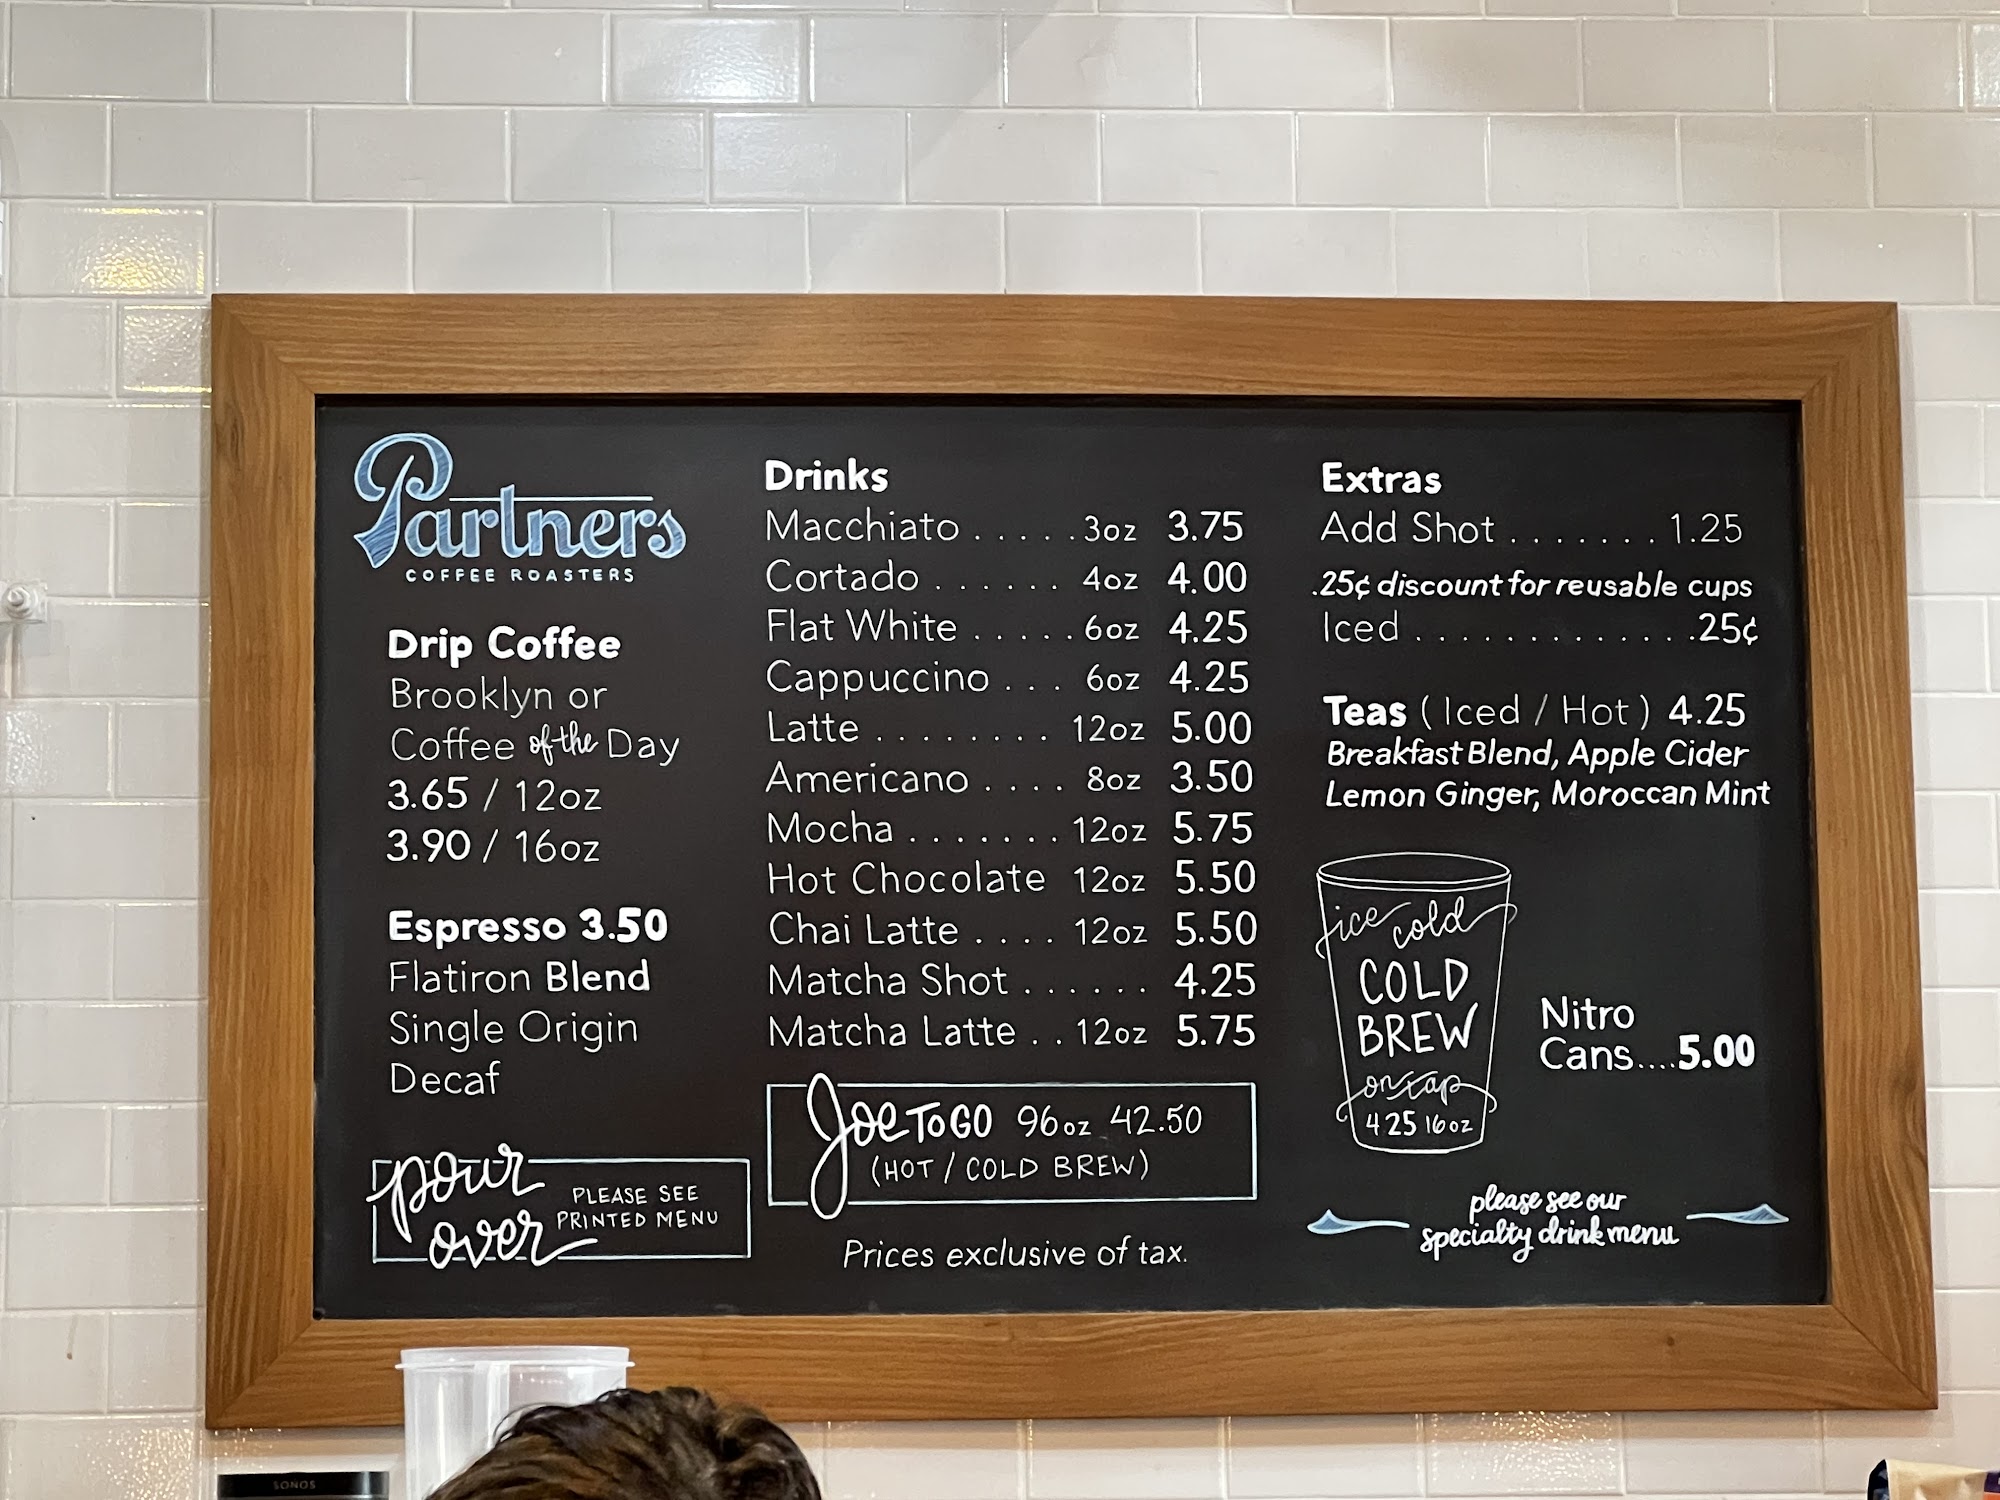 Partners
COFFEE ROASTERS
Drip Coffee
Brooklyn or
Coffee of the Day
3.65 / 12oz
3.90 / 16oz
Espresso 3.50
Flatiron Blend
Single Origin
Decaf
pour over
PLEASE SEE
PRINTED MENU
Drinks
Macchiato . . . . . 3oz 3.75
Cortado . . . . . . 4oz 4.00
Flat White . . . . . 6oz 4.25
Cappuccino . . . 6oz 4.25
Latte . . . . . . . . 12oz 5.00
Americano . . . . 8oz 3.50
Mocha . . . . . . . 12oz 5.75
Hot Chocolate 12oz 5.50
Chai Latte . . . . 12oz 5.50
Matcha Shot . . . . . . 4.25
Matcha Latte . . 12oz 5.75
Joe TO GO 96oz 42.50
(HOT / COLD BREW)
Prices exclusive of tax.
Extras
Add Shot . . . . . . . 1.25
.25¢ discount for reusable cups
Iced . . . . . . . . . . . . . .25¢
Teas (Iced / Hot) 4.25
Breakfast Blend, Apple Cider
Lemon Ginger, Moroccan Mint
ice cold
COLD
BREW
on tap
4.25 16oz
Nitro
Cans....5.00
please see our
specialty drink menu
SONOS